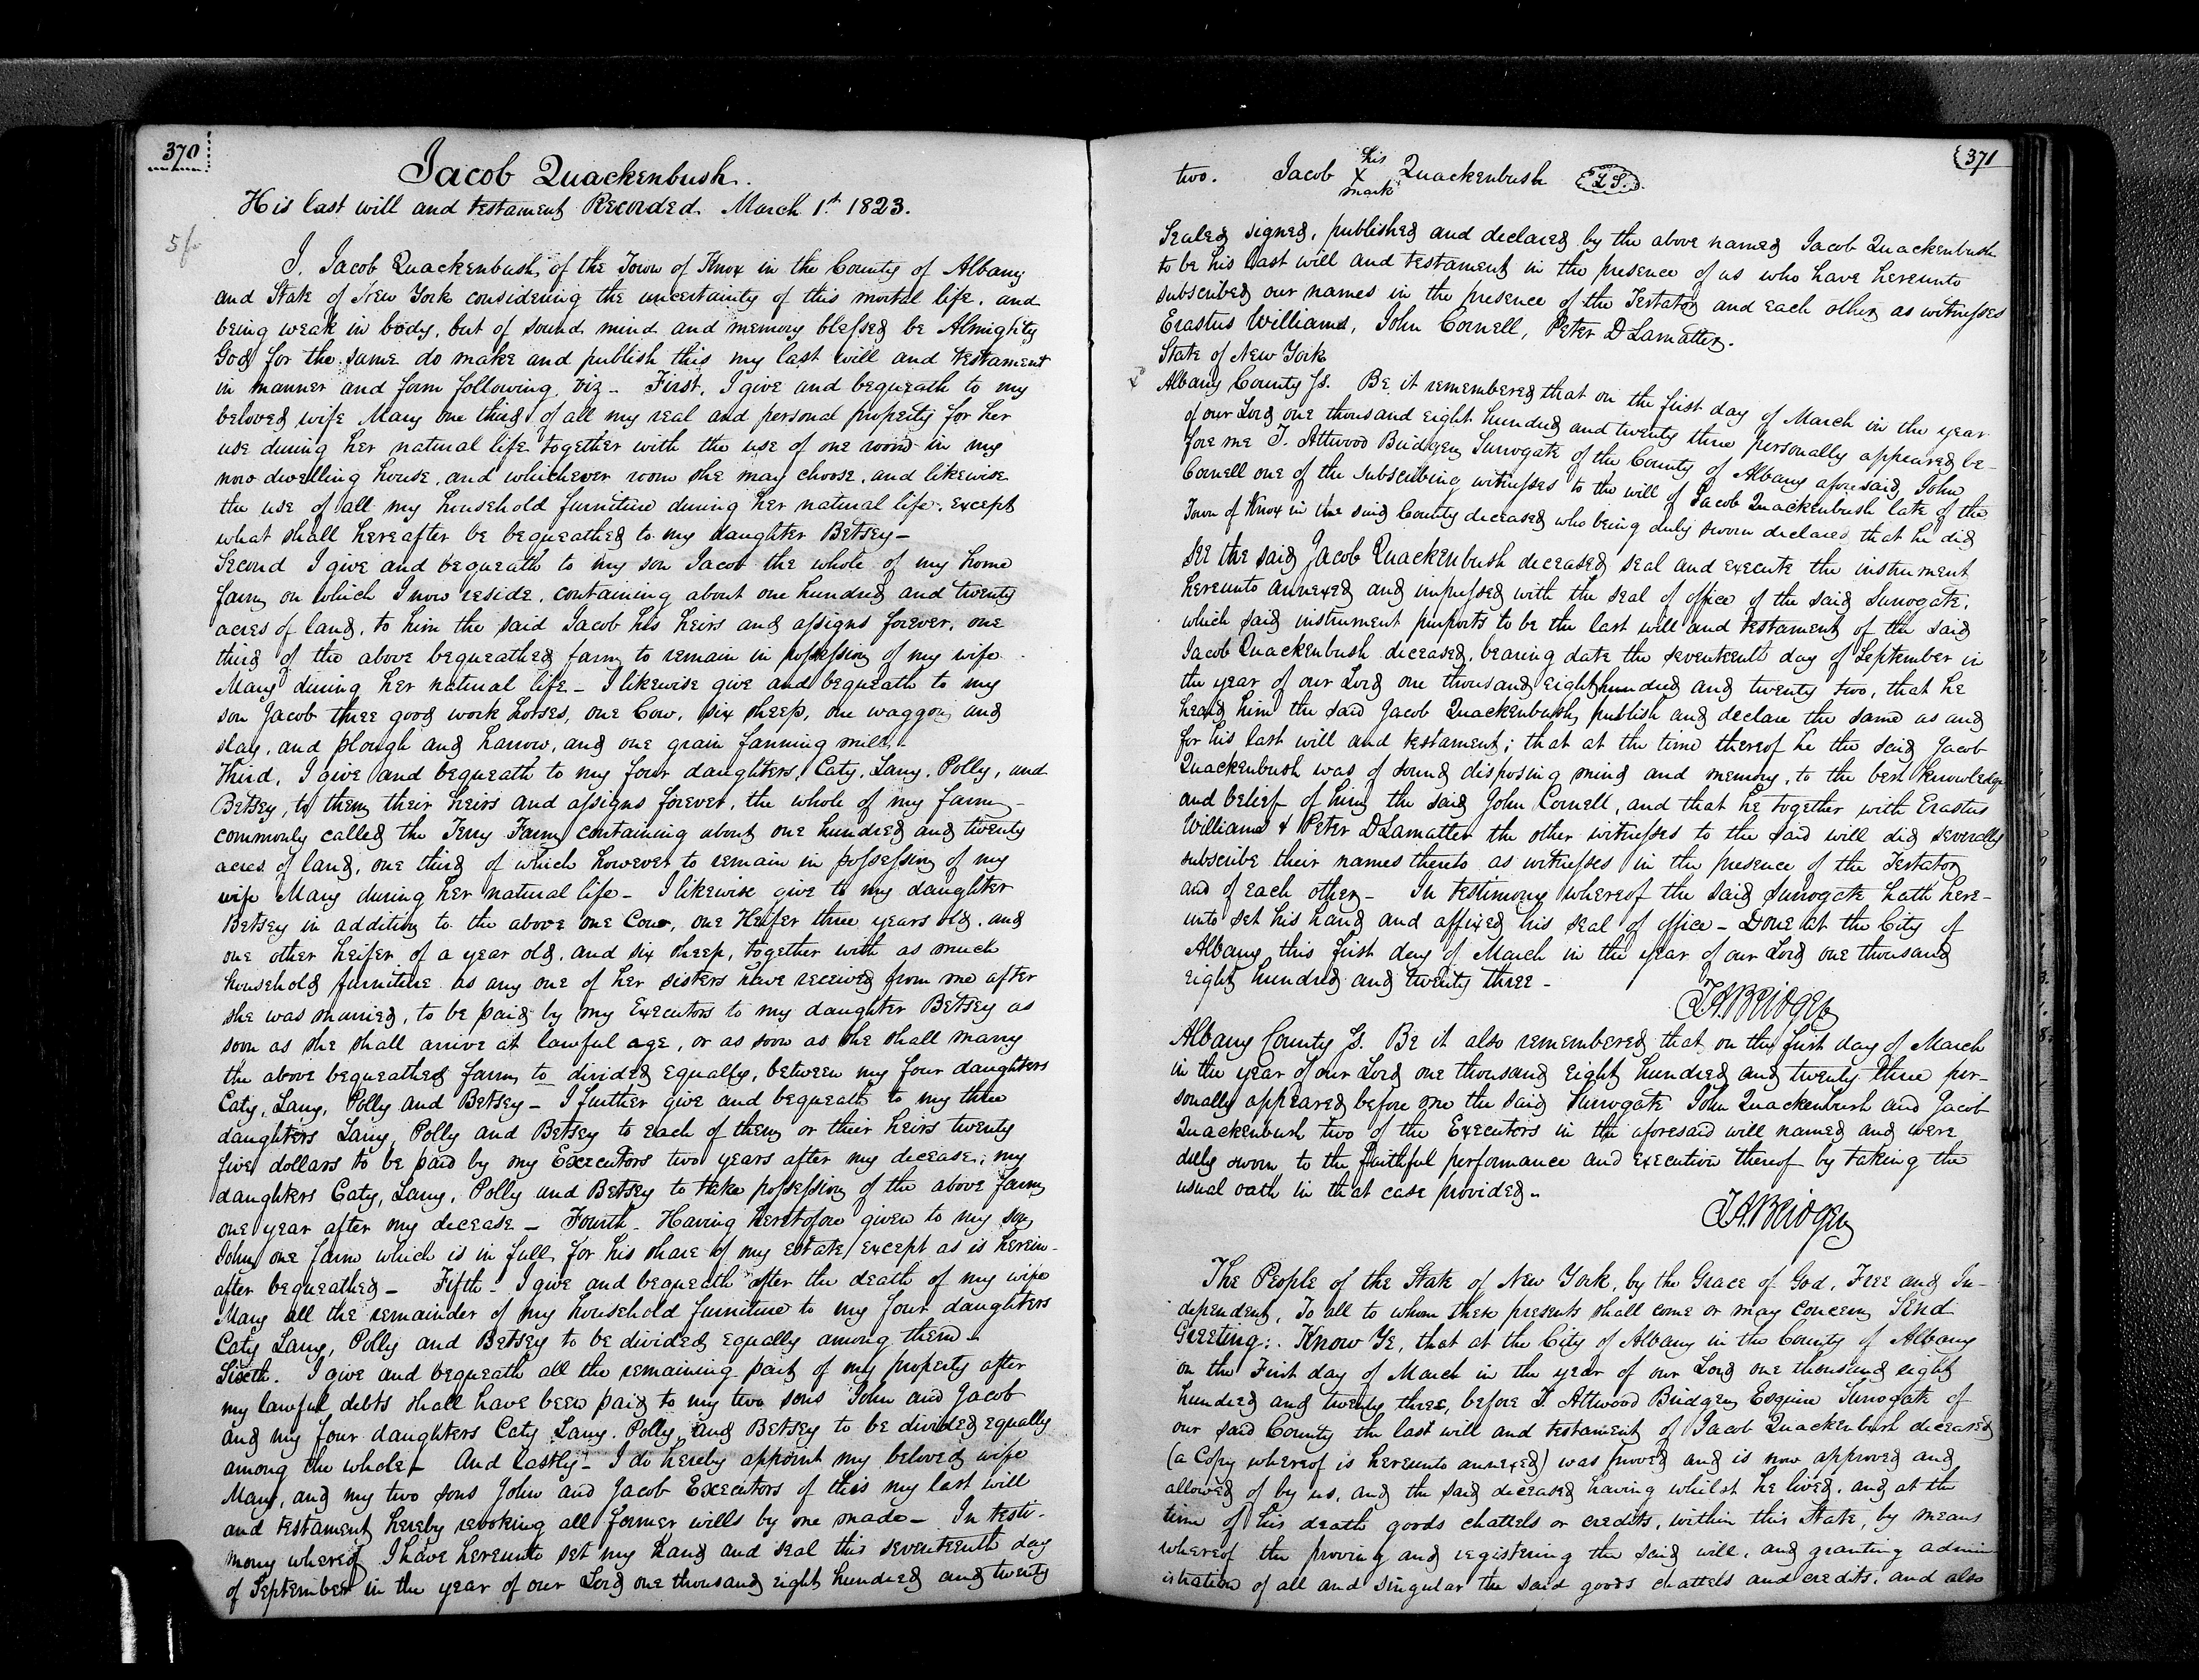 370
Jacob Quackenbush.
His last will and testament Recorded March 1st 1823.
I, Jacob Quackenbush, of the Town of Knox in the County of Albany
and State of New York considering the uncertainty of this mortal life, and
being weak in body, but of sound mind and memory blessed be Almighty
God for the same do make and publish this my last will and testament
in manner and form following, viz - First, I give and bequeath to my
beloved wife Mary one third of all my real and personal property for her
use during her natural life together with the use of one room in my
now dwelling house, and whichever room she may choose, and likewise
the use of all my household furniture during her natural life, except
what shall hereafter be bequeathed to my daughter Betsey -
Second I give and bequeath to my son Jacob the whole of my home
farm on which I now reside, containing about one hundred and twenty
acres of land, to him the said Jacob his heirs and assigns forever, one
third of the above bequeathed farm to remain in possession of my wife
Mary during her natural life - I likewise give and bequeath to my
son Jacob three good work horses, one Cow, six sheep, one waggon, and
slay, and plough and harrow, and one grain fanning mill -
Third, I give and bequeath to my four daughters, Caty, Lany, Polly, and
Betsey, to them their heirs and assigns forever, the whole of my farm
commonly called the Terry Farm containing about one hundred and twenty
acres of land, one third of which however to remain in possession of my
wife Mary during her natural life - I likewise give to my daughter
Betsey in addition to the above one Cow, one Heifer three years old, and
one other heifer of a year old, and six sheep, together with as much
household furniture as any one of her sisters have received from me after
she was married, to be paid by my Executors to my daughter Betsey as
soon as she shall arrive at lawful age, or as soon as she shall marry
the above bequeathed farm to divided equally, between my four daughters
Caty, Lany, Polly and Betsey - I further give and bequeath to my three
daughters Lany, Polly and Betsey to each of them or their heirs twenty
five dollars to be paid by my Executors two years after my decease; my
daughters Caty, Lany, Polly and Betsey to take possession of the above farm
one year after my decease - Fourth - Having heretofore given to my son
John one farm which is in full for his share of my estate, except as is herein-
after bequeathed - Fifth - I give and bequeath after the death of my wife
Mary all the remainder of my household furniture to my four daughters
Caty Lany, Polly and Betsey to be divided equally among them -
Sixth. I give and bequeath all the remaining part of my property after
my lawful debts shall have been paid to my two sons John and Jacob
and my four daughters Caty Lany, Polly and Betsey to be divided equally
among the whole - And Lastly - I do hereby appoint my beloved wife
Mary, and my two sons John and Jacob Executors of this my last will
and testament hereby revoking all former wills by me made - In testi-
mony whereof I have hereunto set my hand and seal this seventeenth day
of September in the year of our Lord one thousand eight hundred and twenty
371
two. Jacob his X mark Quackenbush L.S.
Sealed signed, published and declared by the above named Jacob Quackenbush
to be his last will and testament in the presence of us who have hereunto
subscribed our names in the presence of the Testator and each other as witnesses
Erastus Williams, John Cornell, Peter D Lamatter.
State of New York
Albany County ss. Be it remembered that on the first day of March in the year
of our Lord one thousand eight hundred and twenty three personally appeared be-
fore me T. Attwood Bridgen Surrogate of the County of Albany aforesaid, John
Cornell one of the subscribing witnesses to the will of Jacob Quackenbush late of the
Town of Knox in the said County deceased who being duly sworn declared that he did
see the said Jacob Quackenbush deceased seal and execute the instrument
hereunto annexed and impressed with the seal of office of the said Surrogate,
which said instrument purports to be the last will and testament of the said
Jacob Quackenbush deceased, bearing date the seventeenth day of September in
the year of our Lord one thousand eight hundred and twenty two, that he
heard him the said Jacob Quackenbush, publish and declare the same as and
for his last will and testament; that at the time thereof he the said Jacob
Quackenbush was of sound disposing mind and memory, to the best knowledge
and belief of him the said John Cornell, and that he together with Erastus
Williams & Peter D Lamatter the other witnesses to the said will did severally
subscribe their names thereto as witnesses in the presence of the Testator
and of each other - In testimony whereof the said Surrogate hath here-
unto set his hand and affixed his seal of office - Done at the City of
Albany this first day of March in the year of our Lord one thousand
eight hundred and twenty three -
T.A. Bridgen
Albany County ss. Be it also remembered that on the first day of March
in the year of our Lord one thousand eight hundred and twenty three per-
sonally appeared before me the said Surrogate John Quackenbush and Jacob
Quackenbush two of the Executors in the aforesaid will named and were
duly sworn to the faithful performance and execution thereof by taking the
usual oath in that case provided -
T.A. Bridgen
The People of the State of New York, by the Grace of God, Free and In-
dependent, To all to whom these presents shall come or may concern, Send
Greeting: Know Ye, that at the City of Albany in the County of Albany
on the First day of March in the year of our Lord one thousand eight
hundred and twenty three, before T. Attwood Bridgen Esquire Surrogate of
our said County the last will and testament of Jacob Quackenbush deceased
(a Copy whereof is hereunto annexed) was proved and is now approved and
allowed of by us, and the said deceased having whilst he lived, and at the
time of his death goods chattels or credits, within this State, by means
whereof the proving and registering the said will, and granting admin
istration of all and singular the said goods chattels and credits, and also